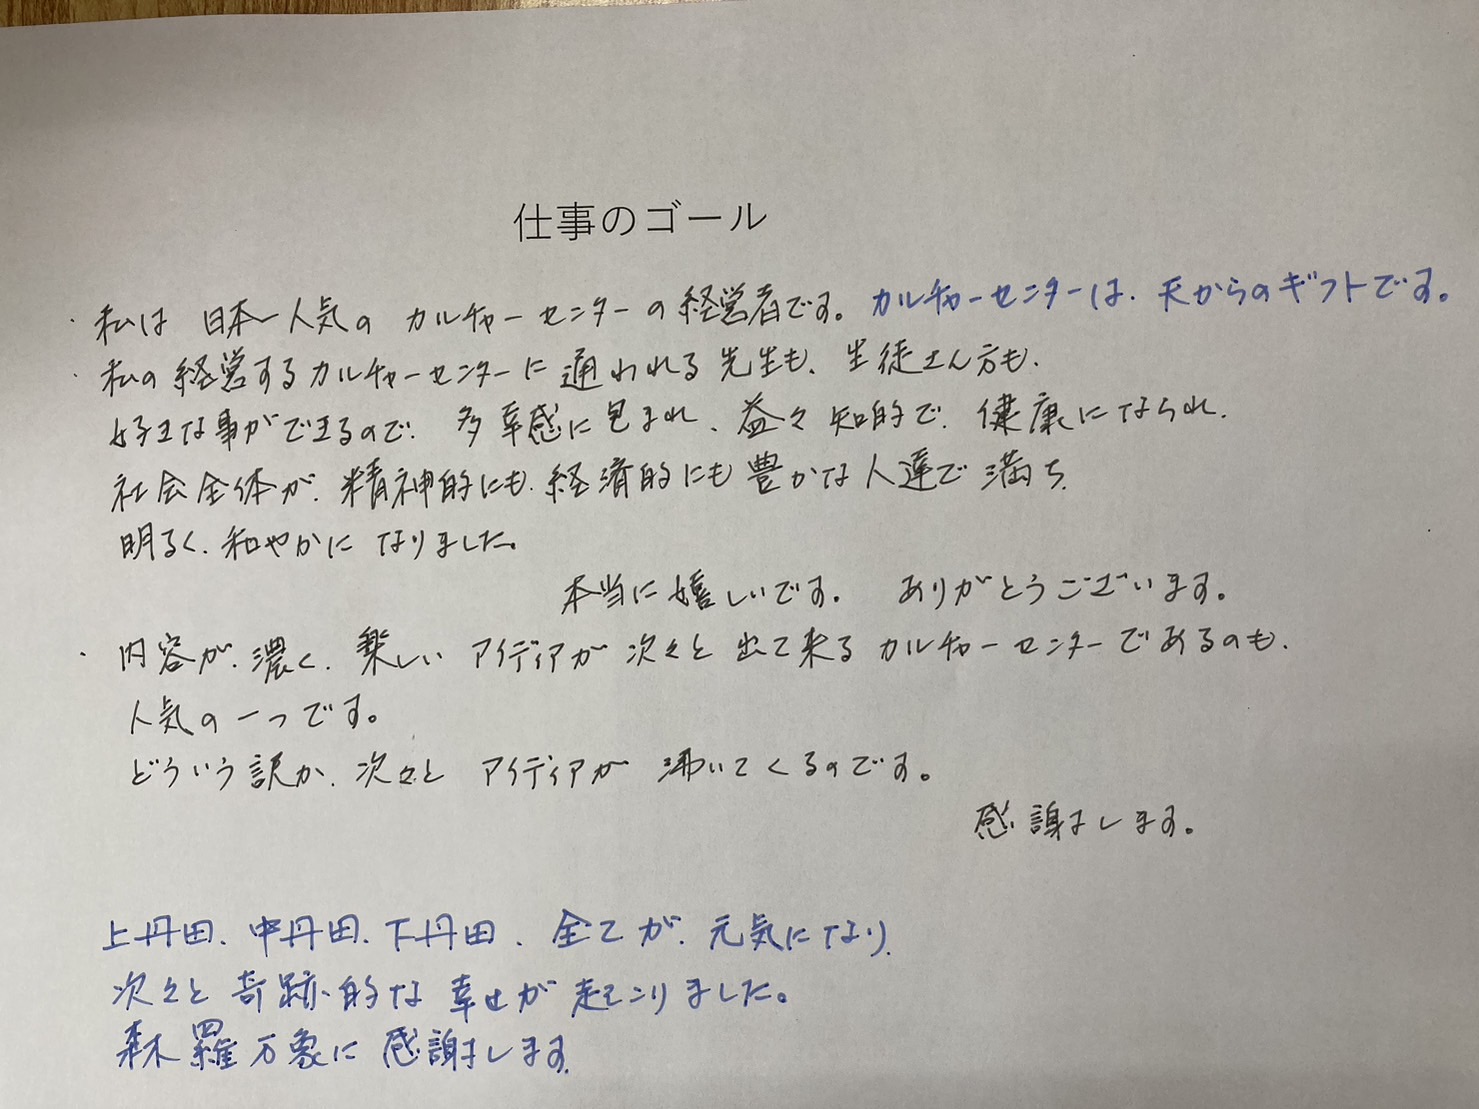 仕事のゴール
・私は日本一人気のカルチャーセンターの経営者です。カルチャーセンターは、天からのギフトです。
・私の経営するカルチャーセンターに通われる先生も、生徒さん方も、
好きな事ができるので、多幸感に包まれ、益々知的で、健康になられ、
社会全体が、精神的にも、経済的にも豊かな人達で満ち、
明るく、和やかになりました。
本当に嬉しいです。 ありがとうございます。
・内容が、濃く、楽しいアイディアが次々と出て来るカルチャーセンターであるのも、
人気の一つです。
どういう訳か、次々とアイディアが沸いてくるのです。
感謝します。
上丹田、中丹田、下丹田、全てが、元気になり、
次々と奇跡的な幸せが起こりました。
森羅万象に感謝します。